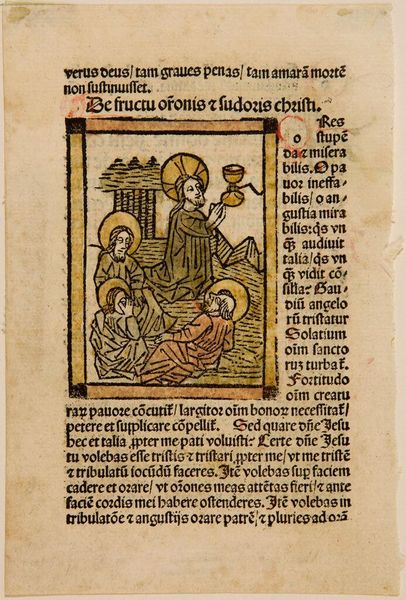 verus deus/ tam graues penas/ tam amarā mortē
non sustinuisset.
De fructu orōnis ⁊ sudoris christi.
O Res
o stupē
da ⁊ misera
bilis. O pa
uor ineffa⸗
bilis/ o an⸗
gustia mira
bilis: q̄s vn
q̄ꝫ audiuit
talia/ q̄s vn
q̄ꝫ vidit cō⸗
silīa? Gau⸗
diū angelo
rū tristatur
Solatium
oīm sancto
ruꝫ turbat̄.
Fortitudo
oīm creatu
raꝝ pauore cōcutit̄/ largitor oīm bonoꝝ necessitat̄/
petere et supplicare cōpellit̄. Sed quare dn̄e Jesu
hec et talia ꝓpter me pati voluisti? Certe dn̄e Jesu
tu volebas esse tristis ⁊ tristari ꝓpter me/ vt me tristē
⁊ tribulatū iocūdū faceres. Itē volebas suꝑ faciem
cadere et orare/ vt orōnes meas attētas fieri/ ⁊ ante
faciē cordis mei habere ostenderes. Itē volebas in
tribulatōe ⁊ angustijs orare patrē/ ⁊ pluries ad orā